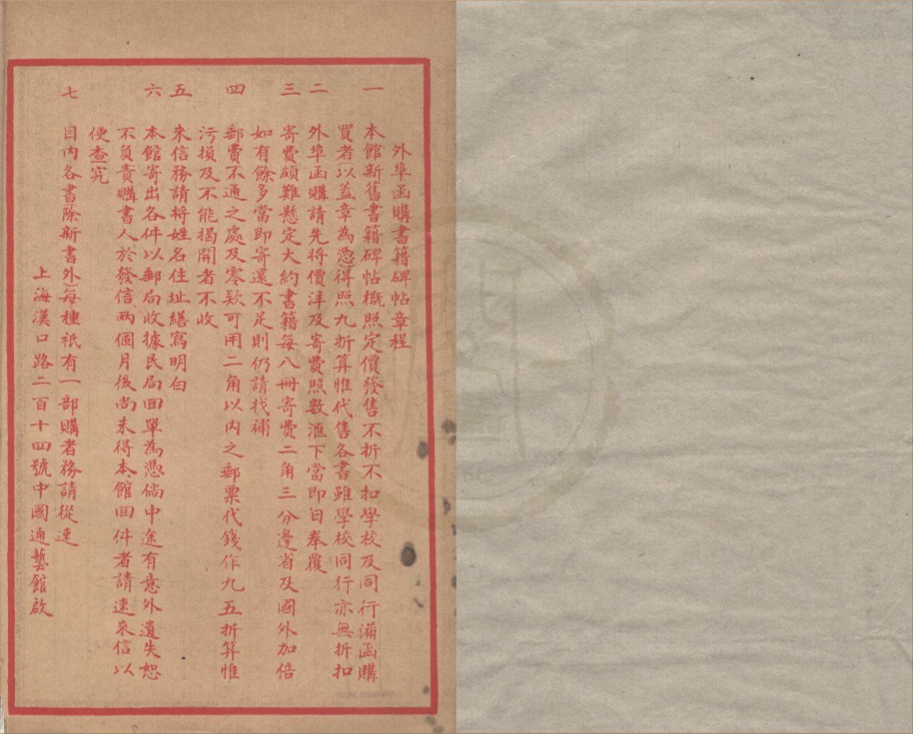 外埠函購書籍碑帖章程
一 本館新舊書籍碑帖概照定價發售不折不扣學校及同行備函購
買者(以蓋章為憑)得照九折算惟代售各書雖學校同行亦無折扣
二 外埠函購請先將價洋及寄費照數滙下當即日奉覆
三 寄費頗難懸定大約書籍每八冊寄費二角三分邊省及國外加倍
如有餘多當即寄還不足則仍請找補
四 郵費不通之處及零欵可用二角以內之郵票代錢作九五折算惟
污損及不能揭開者不收
五 來信務請将姓名住址繕寫明白
六 本館寄出各件以郵局收據民局回單為憑倘中途有意外遺失恕
不負責購書人於發信兩個月後尚未得本館回件者請速來信以
便查究
七 目內各書(除新書外)每種祇有一部購者務請從速
上海漢口路二百十四號中國通藝館啟